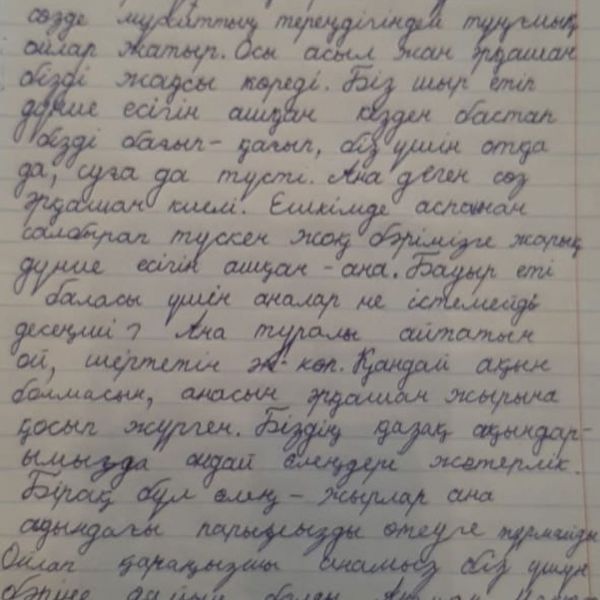 сөзде мұхиттың тереңдігіндей тұңғиық
ойлар жатыр. Осы асыл жан әрдашан
бізді жақсы көреді. Біз шыр етіп
дүние есігін ашқан кезден бастап
бізді бағып-қағып, біз үшін отқа
да, суға да түсті. Ана деген сөз
әрдашан киелі. Ешкімде аспанан
салбтрап түскен жоқ бәрімізге жарық
дүние есігін ашқан - ана. Бауыр еті
баласы үшін аналар не істемейді
десеңші? Ана туралы айтатын
ой, шертетін ән көп. Қандай ақын
болмасын, анасын әрдашан жырына
қосып жүрген. Біздің қазақ ақындар-
ымызда ондай өлеңдері жетерлік.
Бірақ бұл өлең - жырлар ана
адындағы парызымызды өтеуге тұрмайды
Ойлап қараңызшы анамыз біз үшін
бәріне дайын болған